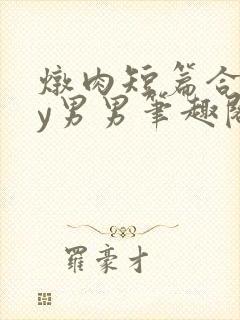 燉肉短篇合
y男男筆趣閣
羅豪才